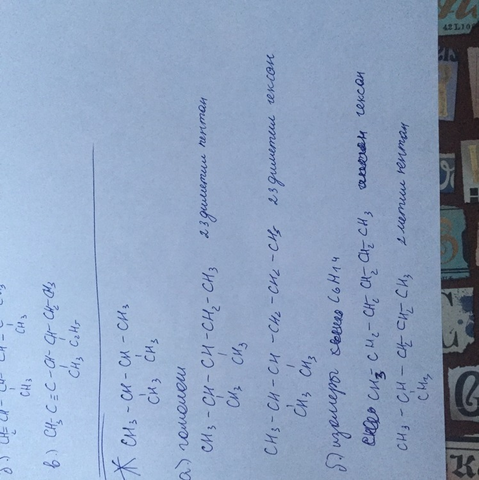 в) CH₃ C ≡ C - CH - CH - CH₂ CH₃
CH₃ C₂H₅
Ж CH₃ - CH - CH - CH₃
CH₃ CH₃
а) гомологи
CH₃ - CH - CH - CH₂ - CH₃ 23 диметил пентан
CH₃ CH₃
CH₃ - CH - CH - CH₂ - CH₂ - CH₃ 23 диметил гексан
CH₃ CH₃
б) изомеры C₆H₁₄
CH₃ CH₂ - CH₂ CH₂ CH₂ CH₃ гексан
CH₃ - CH - CH₂ CH₂ CH₃ 2 метил пентан
CH₃